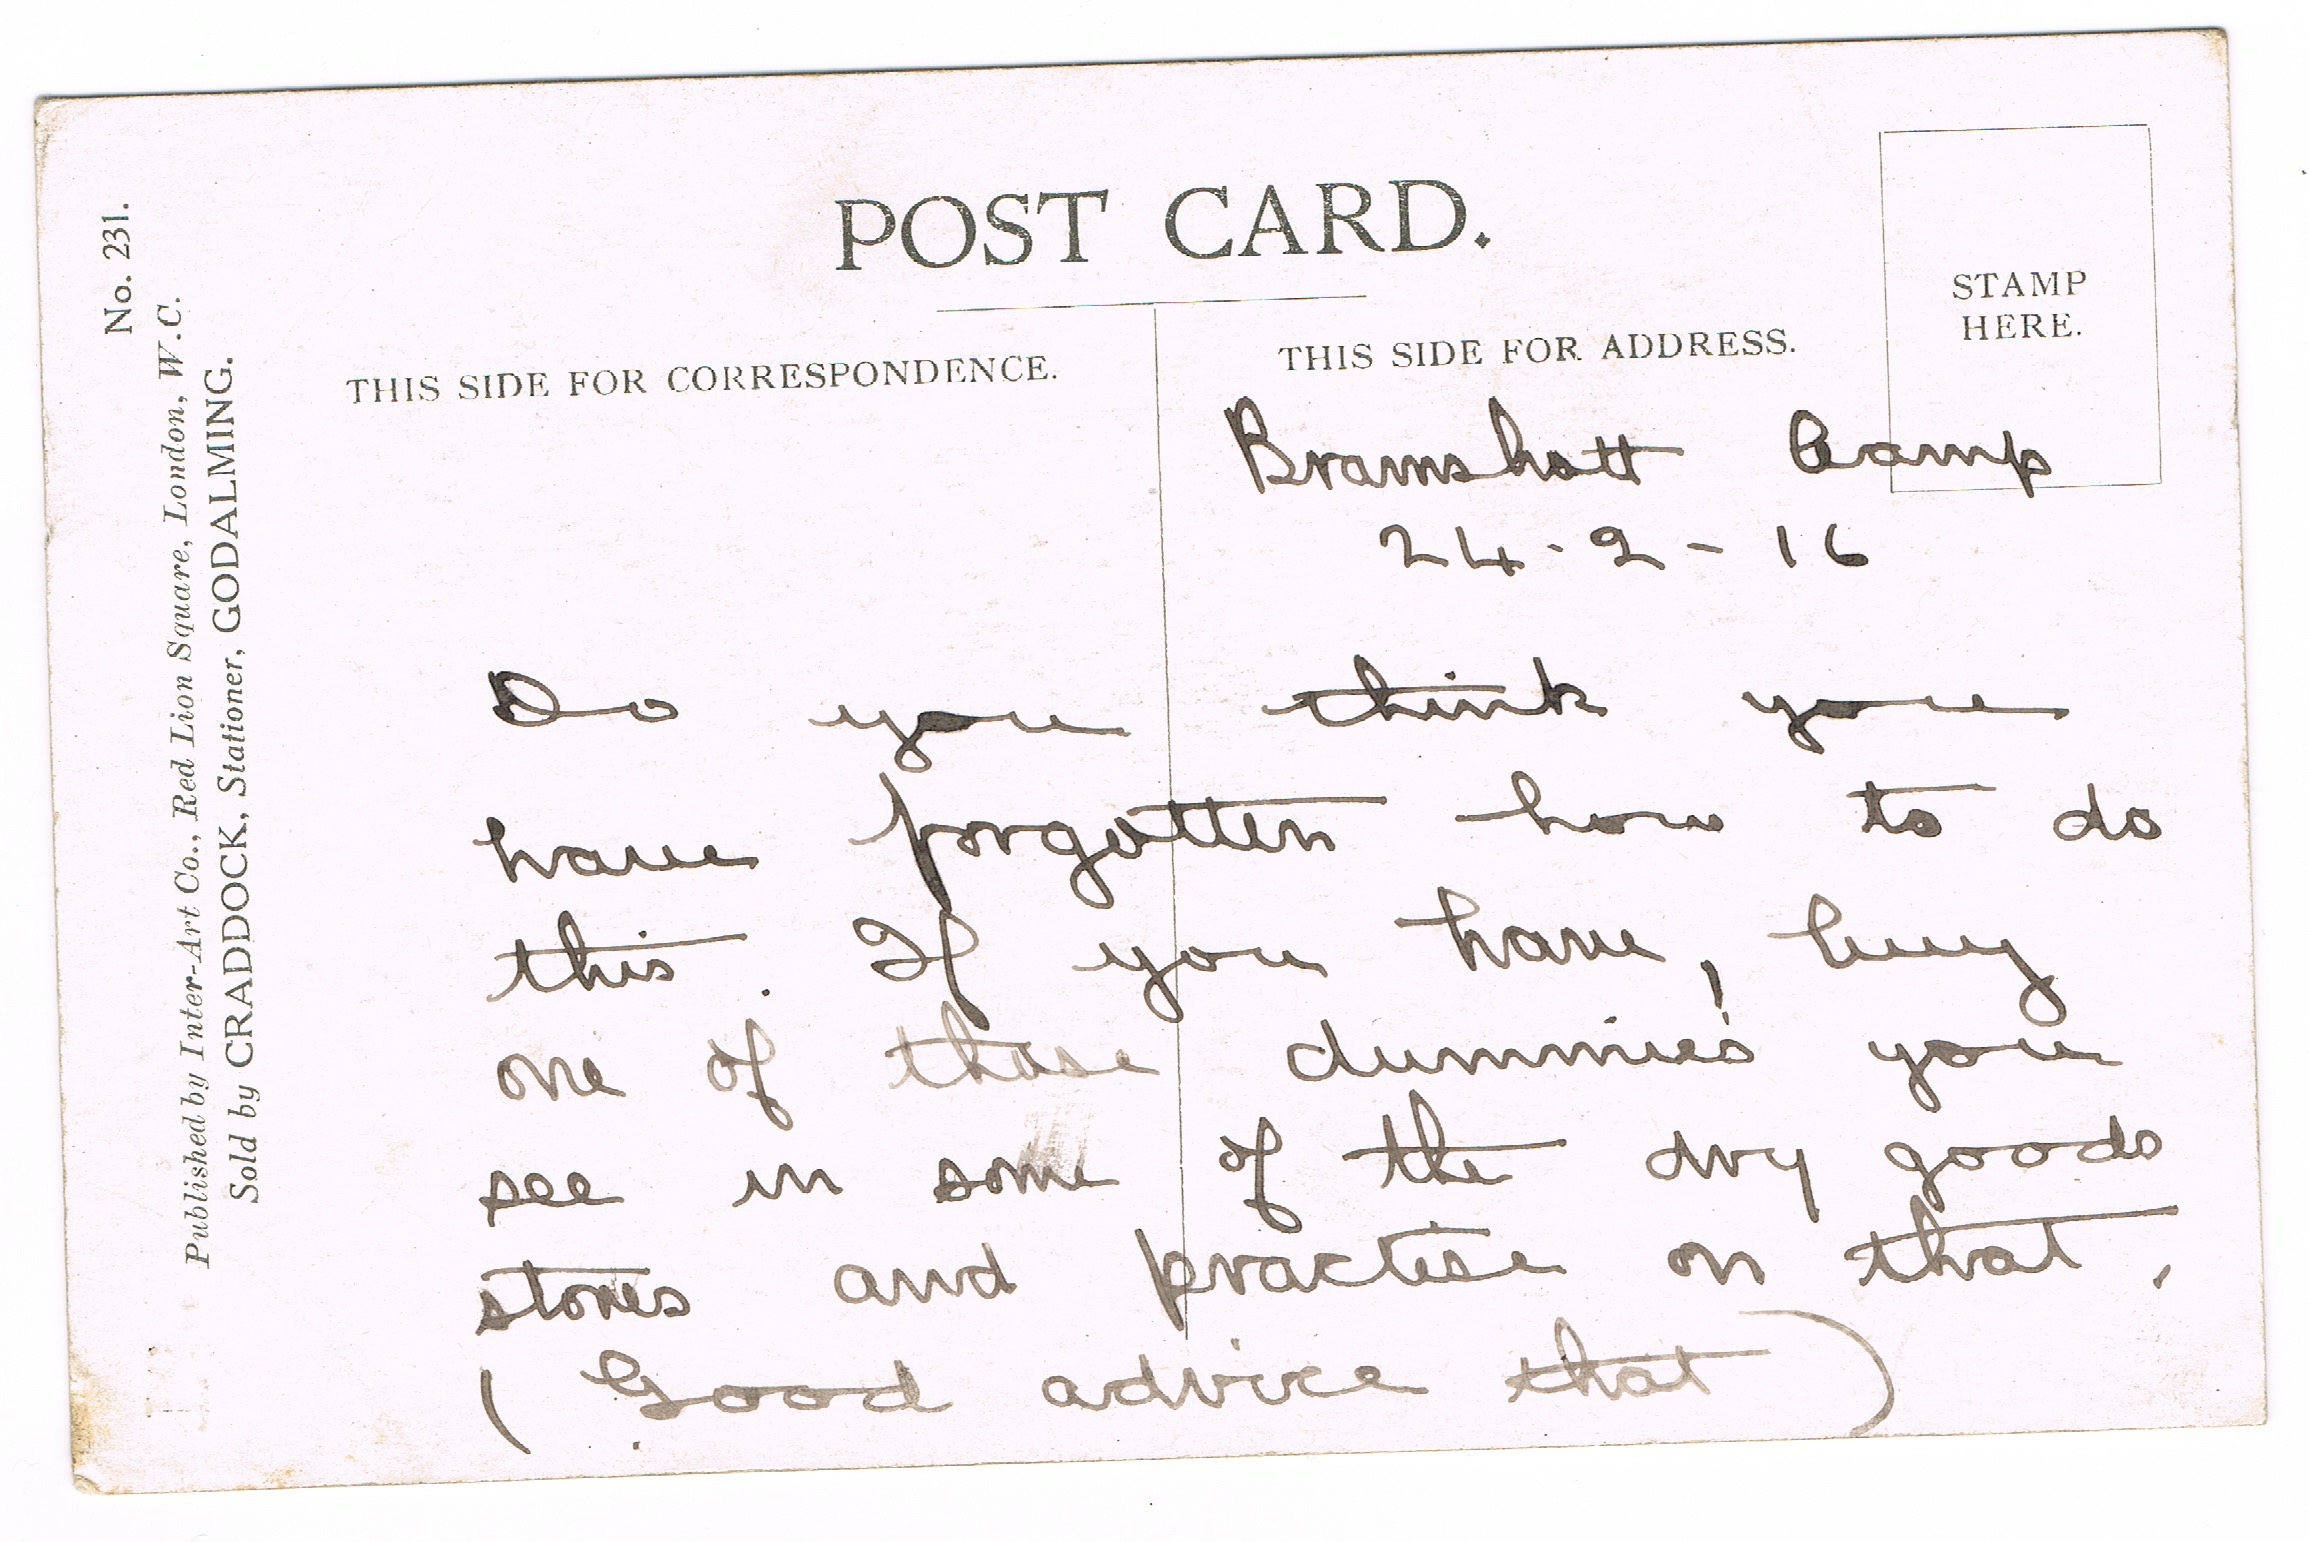 No. 231.
Published by Inter-Art Co., Red Lion Square, London, W.C.
Sold by CRADDOCK, Stationer, GODALMING.
POST CARD.
THIS SIDE FOR CORRESPONDENCE.
THIS SIDE FOR ADDRESS.
STAMP
HERE.
Bramshott Camp
24-2-16
Do you think you
have forgotten how to do
this. If you have, buy
one of those dummies you
see in some of the dry goods
stores and practise on that,
(Good advice that)